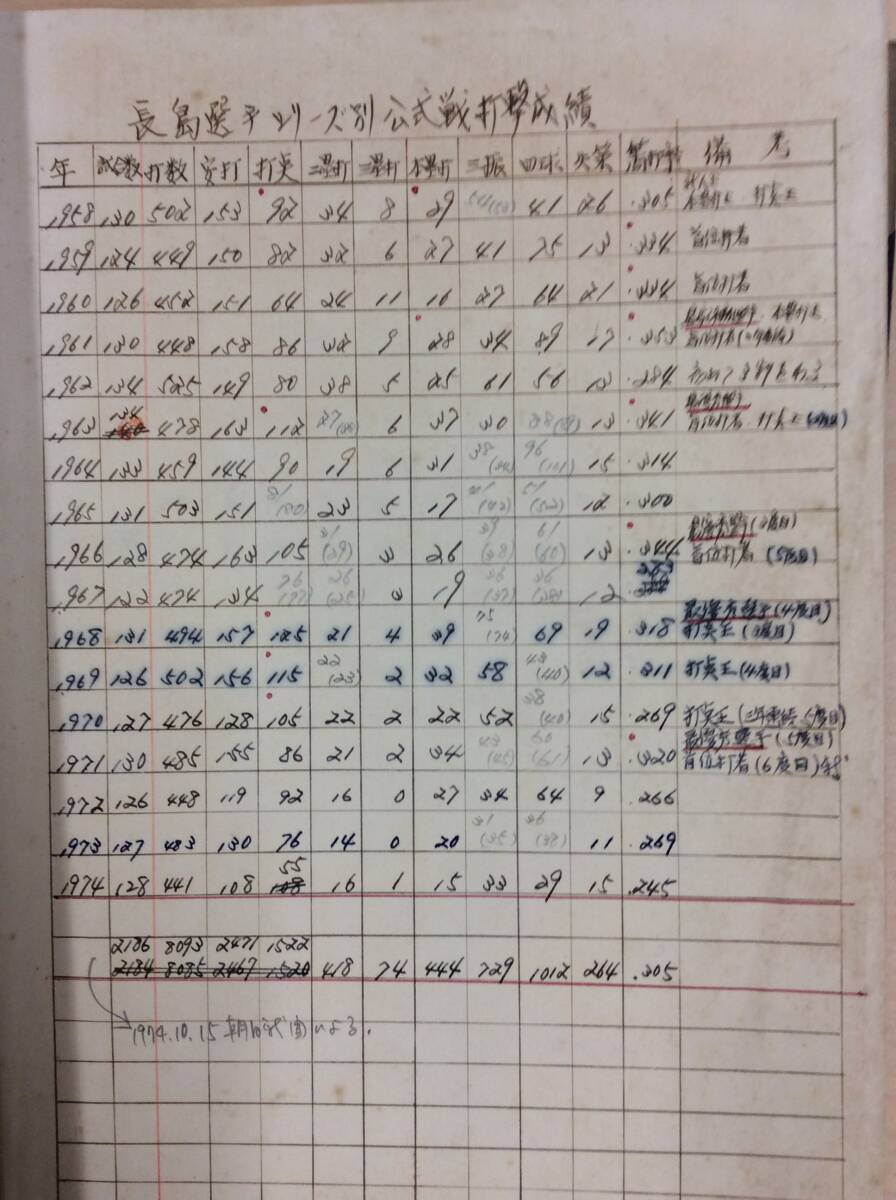 長島選手シリーズ別公式戦打撃成績
年 試合数 打数 安打 打点 二塁打 三塁打 本塁打 三振 四球 失策 打率 備考
1958 130 502 153 92 34 8 29 41 26 .305 新人王 本塁打王 打点王
1959 124 449 150 82 32 6 27 41 75 13 .334 首位打者
1960 126 452 151 64 24 11 16 27 64 21 .334 首位打者
1961 130 448 158 86 32 9 28 34 89 17 .353 最優秀選手 本塁打王 首位打者
1962 134 525 149 80 38 5 25 61 56 13 .284
1963 134 478 163 112 27 6 37 30 13 .341 最優秀選手 首位打者 打点王
1964 133 459 144 90 19 6 31 38 96 (101) 15 .314
1965 131 503 151 81 (80) 23 5 17 41 (42) 51 (52) 12 .300
1966 128 474 163 105 31 (29) 3 26 39 (38) 61 (60) 13 .344 最優秀選手 (3度目) 首位打者 (5度目)
1967 122 474 134 76 (77) 26 (25) 3 19 36 (37) 12 .283
1968 131 494 157 125 21 4 39 75 (74) 69 19 .318 最優秀選手 (4度目) 打点王 (3度目)
1969 126 502 156 115 22 (23) 2 32 58 43 (40) 12 .311 打点王 (4度目)
1970 127 476 128 105 22 2 22 52 38 (40) 15 .269 打点王 (三年連続 5度目)
1971 130 485 155 86 21 2 34 43 (45) 60 (61) 13 .320 最優秀選手 (5度目) 首位打者 (6度目)
1972 126 448 119 92 16 0 27 34 64 9 .266
1973 127 483 130 76 14 0 20 31 (35) 36 (38) 11 .269
1974 128 441 108 55 16 1 15 33 29 15 .245
2186 8093 2471 1522
2184 8085 2467 1520 418 74 444 729 1012 264 .305
1974.10.15 朝日 による.